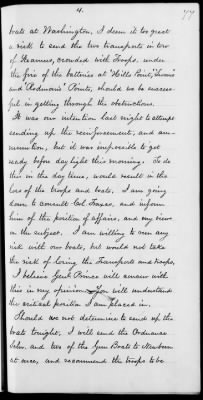 4.
77
boats at Washington, I deem it too great
a risk to send the two transports in tow
of Steamers, crowded with Troops, under
the fire of the batteries at "Hills Point," "Swan's"
and "Rodman's" Points, should we be success-
ful in getting through the obstructions.
It was our intention last night to attempt
sending up the reinforcement, and am-
munition, but it was impossible to get
ready before day light this morning. To do
this in the day time, would result in the
loss of the troops and boats. I am going
down to consult Col. and inform
him of the position of affairs, and my views
on the subject. I am willing to risk any
risk with our boats, but would not take
the risk of losing the Transports and troops.
I believe Genl. Prince will concur with
this in my opinion. You will understand
the critical position I am placed in.
Should we not determine to send up the
boats tonight, I will send the Ordnance
Schr. and two of the Gun Boats to Newbern
at once, and recommend the troops to be